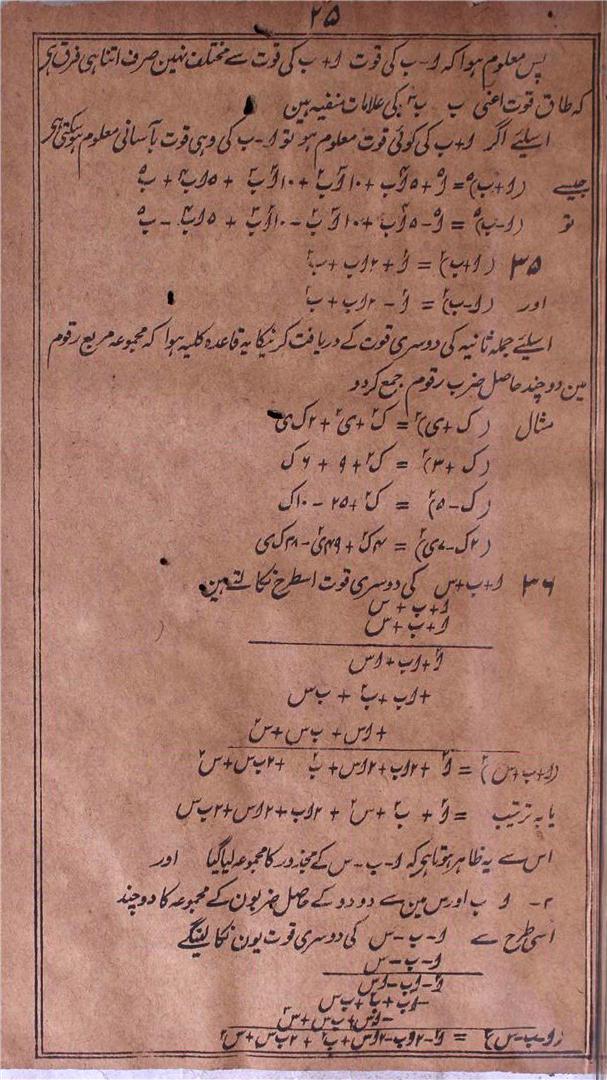 ۲۵
پس معلوم ہوا کہ ا-ب کی قوت ا+ب کی قوت سے مختلف نہین صرف اتنا ہی فرق ہی
کہ طاق قوت اعنی ب ب۳ کی علامات منفیہ ہین
اسلیے اگر ا+ب کی کوئی قوت معلوم ہو تو ا-ب کی وہی قوت بآسانی معلوم ہو سکتی ہی
جیسے (ا+ب)۵ = ا۵ + ۵ا۴ب + ۱۰ا۳ب۲ + ۱۰ا۲ب۳ + ۵اب۴ + ب۵
تو (ا-ب)۵ = ا۵ - ۵ا۴ب + ۱۰ا۳ب۲ - ۱۰ا۲ب۳ + ۵اب۴ - ب۵
۳۵ (ا+ب)۲ = ا۲ + ۲اب + ب۲
اور (ا-ب)۲ = ا۲ - ۲اب + ب۲
اسلیے جملہ ثنائیہ کی دوسری قوت کے دریافت کرنیکا یہ قاعدہ کلیہ ہوا کہ مجموعہ مربع رقوم
مین دو چند حاصل ضرب رقوم جمع کردو
مثال (ک+ی)۲ = ک۲ + ی۲ + ۲ک ی
(ک+۳)۲ = ک۲ + ۹ + ۶ک
(ک-۵)۲ = ک۲ + ۲۵ - ۱۰ک
(۲ک-۷ی)۲ = ۴ک۲ + ۴۹ی۲ - ۲۸ک ی
۳۶ ا+ب+س کی دوسری قوت اسطرح نکالتے ہین
ا+ب+س
ا+ب+س
ا۲ + اب + اس
+اب + ب۲ + ب س
+اس + ب س + س۲
(ا+ب+س)۲ = ا۲ + ۲اب + ۲اس + ب۲ + ۲ب س + س۲
یا بہ ترتیب = ا۲ + ب۲ + س۲ + ۲اب + ۲اس + ۲ب س
اس سے یہ ظاہر ہوتا ہی کہ ا-ب-س کے مجذور کا مجموعہ لیا گیا اور
۲- ا ب اور س مین سے دو دو کے حاصل ضربون کے مجموعہ کا دو چند
اسی طرح سے ا-ب-س کی دوسری قوت یون نکالینگے
ا-ب-س
ا۲-اب-اس
-اب+ب۲+ب س
-اس+ب س+س۲
(ا-ب-س)۲ = ا۲-۲اب-۲اس+ب۲+۲ب س+س۲